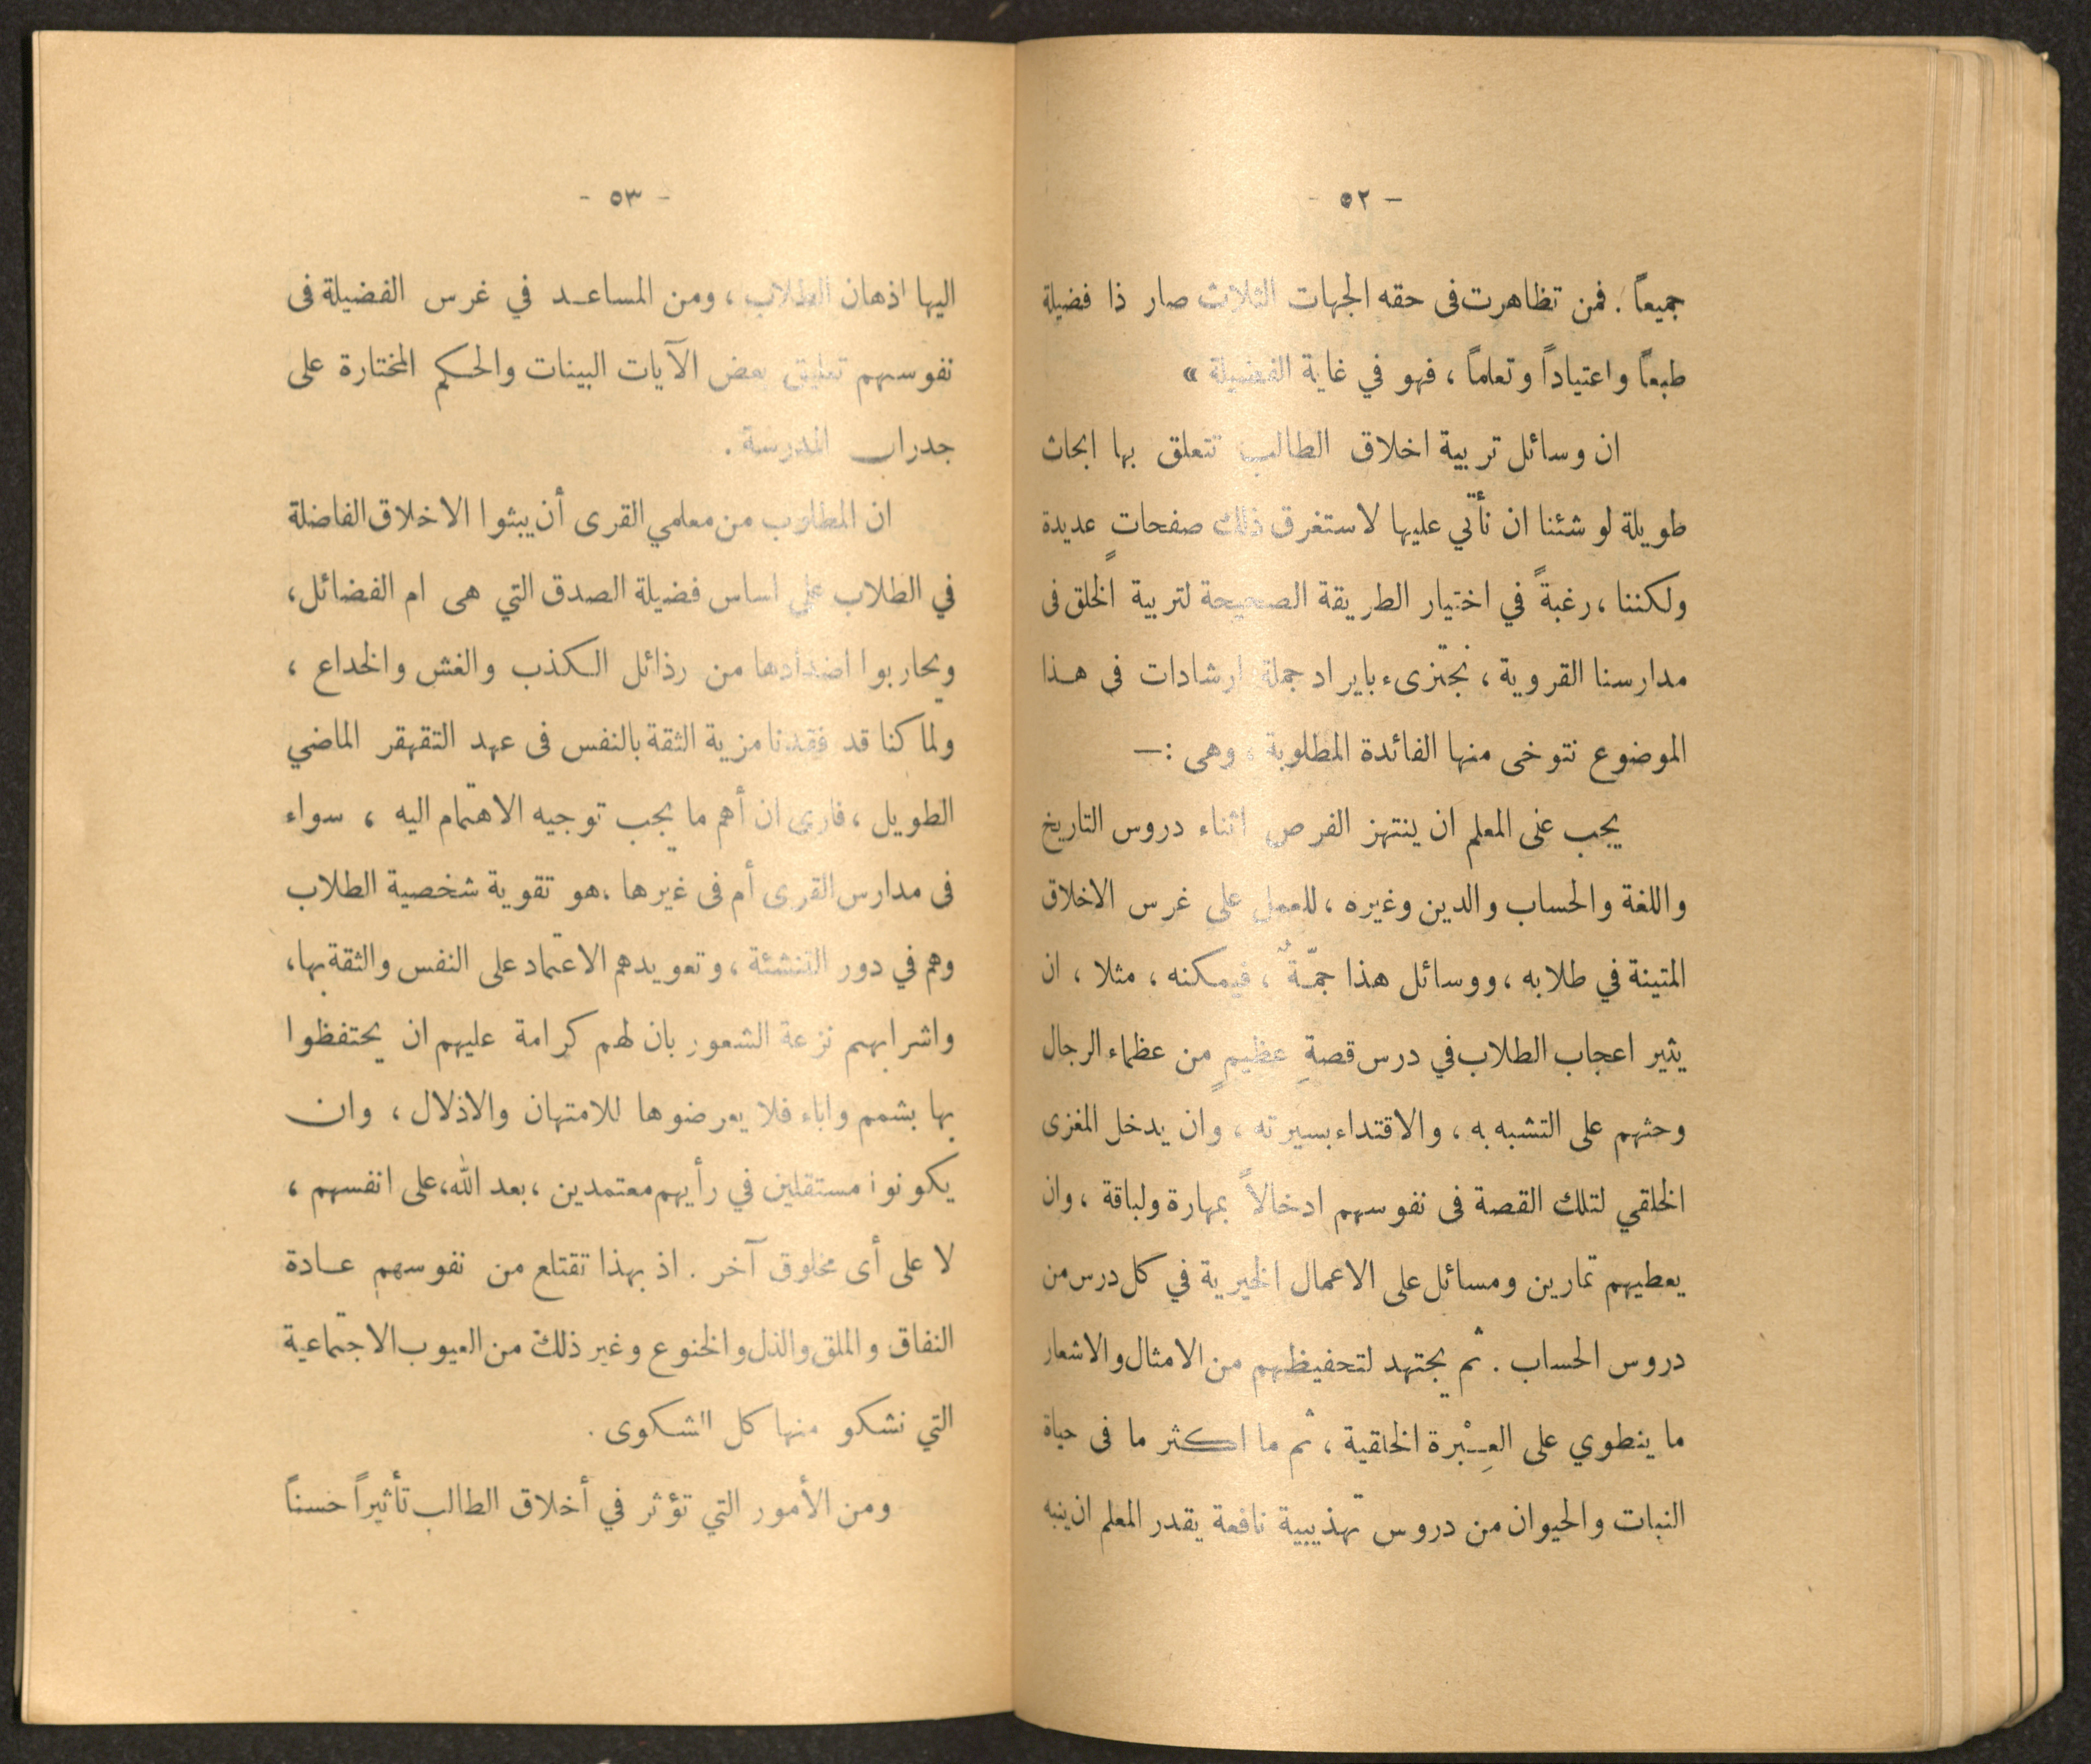 - ٥٢ -
جميعاً. فمن تظاهرت فى حقه الجهات الثلاث صار ذا فضيلة
طبعاً واعتياداً وتعلماً، فهو في غاية الفضيلة »
ان وسائل تربية اخلاق الطالب تتعلق بها ابحاث
طويلة لو شئنا ان نأتي عليها لاستغرق ذلك صفحاتٍ عديدة
ولكننا، رغبةً في اختيار الطريقة الصحيحة لتربية الخلق فى
مدارسنا القروية، نجتزىء بايراد جملة ارشادات فى هـذا
الموضوع نتوخى منها الفائدة المطلوبة، وهى :—
يجب على المعلم ان ينتهز الفرص اثناء دروس التاريخ
واللغة والحساب والدين وغيره، للعمل على غرس الاخلاق
المتينة في طلابه، ووسائل هذا جمّـةٌ، فيمكنه، مثلا، ان
يثير اعجاب الطلاب في درس قصةِ عظيمٍ من عظماء الرجال
وحثهم على التشبه به، والاقتداء بسيرته، وان يدخل المغزى
الخلقي لتلك القصة فى نفوسهم ادخالاً بمهارة ولباقة، وان
يعطيهم تمارين ومسائل على الاعمال الخيرية في كل درس من
دروس الحساب. ثم يجتهد لتحفيظهم من الامثال والاشعار
ما ينطوي على العِـبْرة الخلقية، ثم ما اكثر ما فى حياة
النبات والحيوان من دروس تهذيبية نافعة يقدر المعلم ان ينبه
- ٥٣ -
اليها اذهان الطلاب، ومن المساعـد في غرس الفضيلة فى
نفوسهم تعليق بعض الآيات البينات والحكم المختارة على
جدران المدرسة.
ان المطلوب من معلمي القرى أن يبثوا الاخلاق الفاضلة
في الطلاب على اساس فضيلة الصدق التي هى ام الفضائل،
ويحاربوا اضدادها من رذائل الكذب والغش والخداع،
ولما كنا قد فقدنا مزية الثقة بالنفس فى عهد التقهقر الماضي
الطويل، فارى ان أهم ما يجب توجيه الاهتمام اليه، سواء
فى مدارس القرى أم فى غيرها، هو تقوية شخصية الطلاب
وهم في دور التنشئة، وتعويدهم الاعتماد على النفس والثقة بها،
واشرابهم نزعة الشعور بان لهم كرامة عليهم ان يحتفظوا
بها بشمم واباء فلا يعرضوها للامتهان والاذلال، وان
يكونوا مستقلين في رأيهم معتمدين، بعد الله، على انفسهم،
لا على أى مخلوق آخر. اذ بهذا تقتلع من نفوسهم عـادة
النفاق والملق والذل والخنوع وغير ذلك من العيوب الاجتماعية
التي نشكو منها كل الشكوى.
ومن الأمور التي تؤثر في أخلاق الطالب تأثيراً حسناً